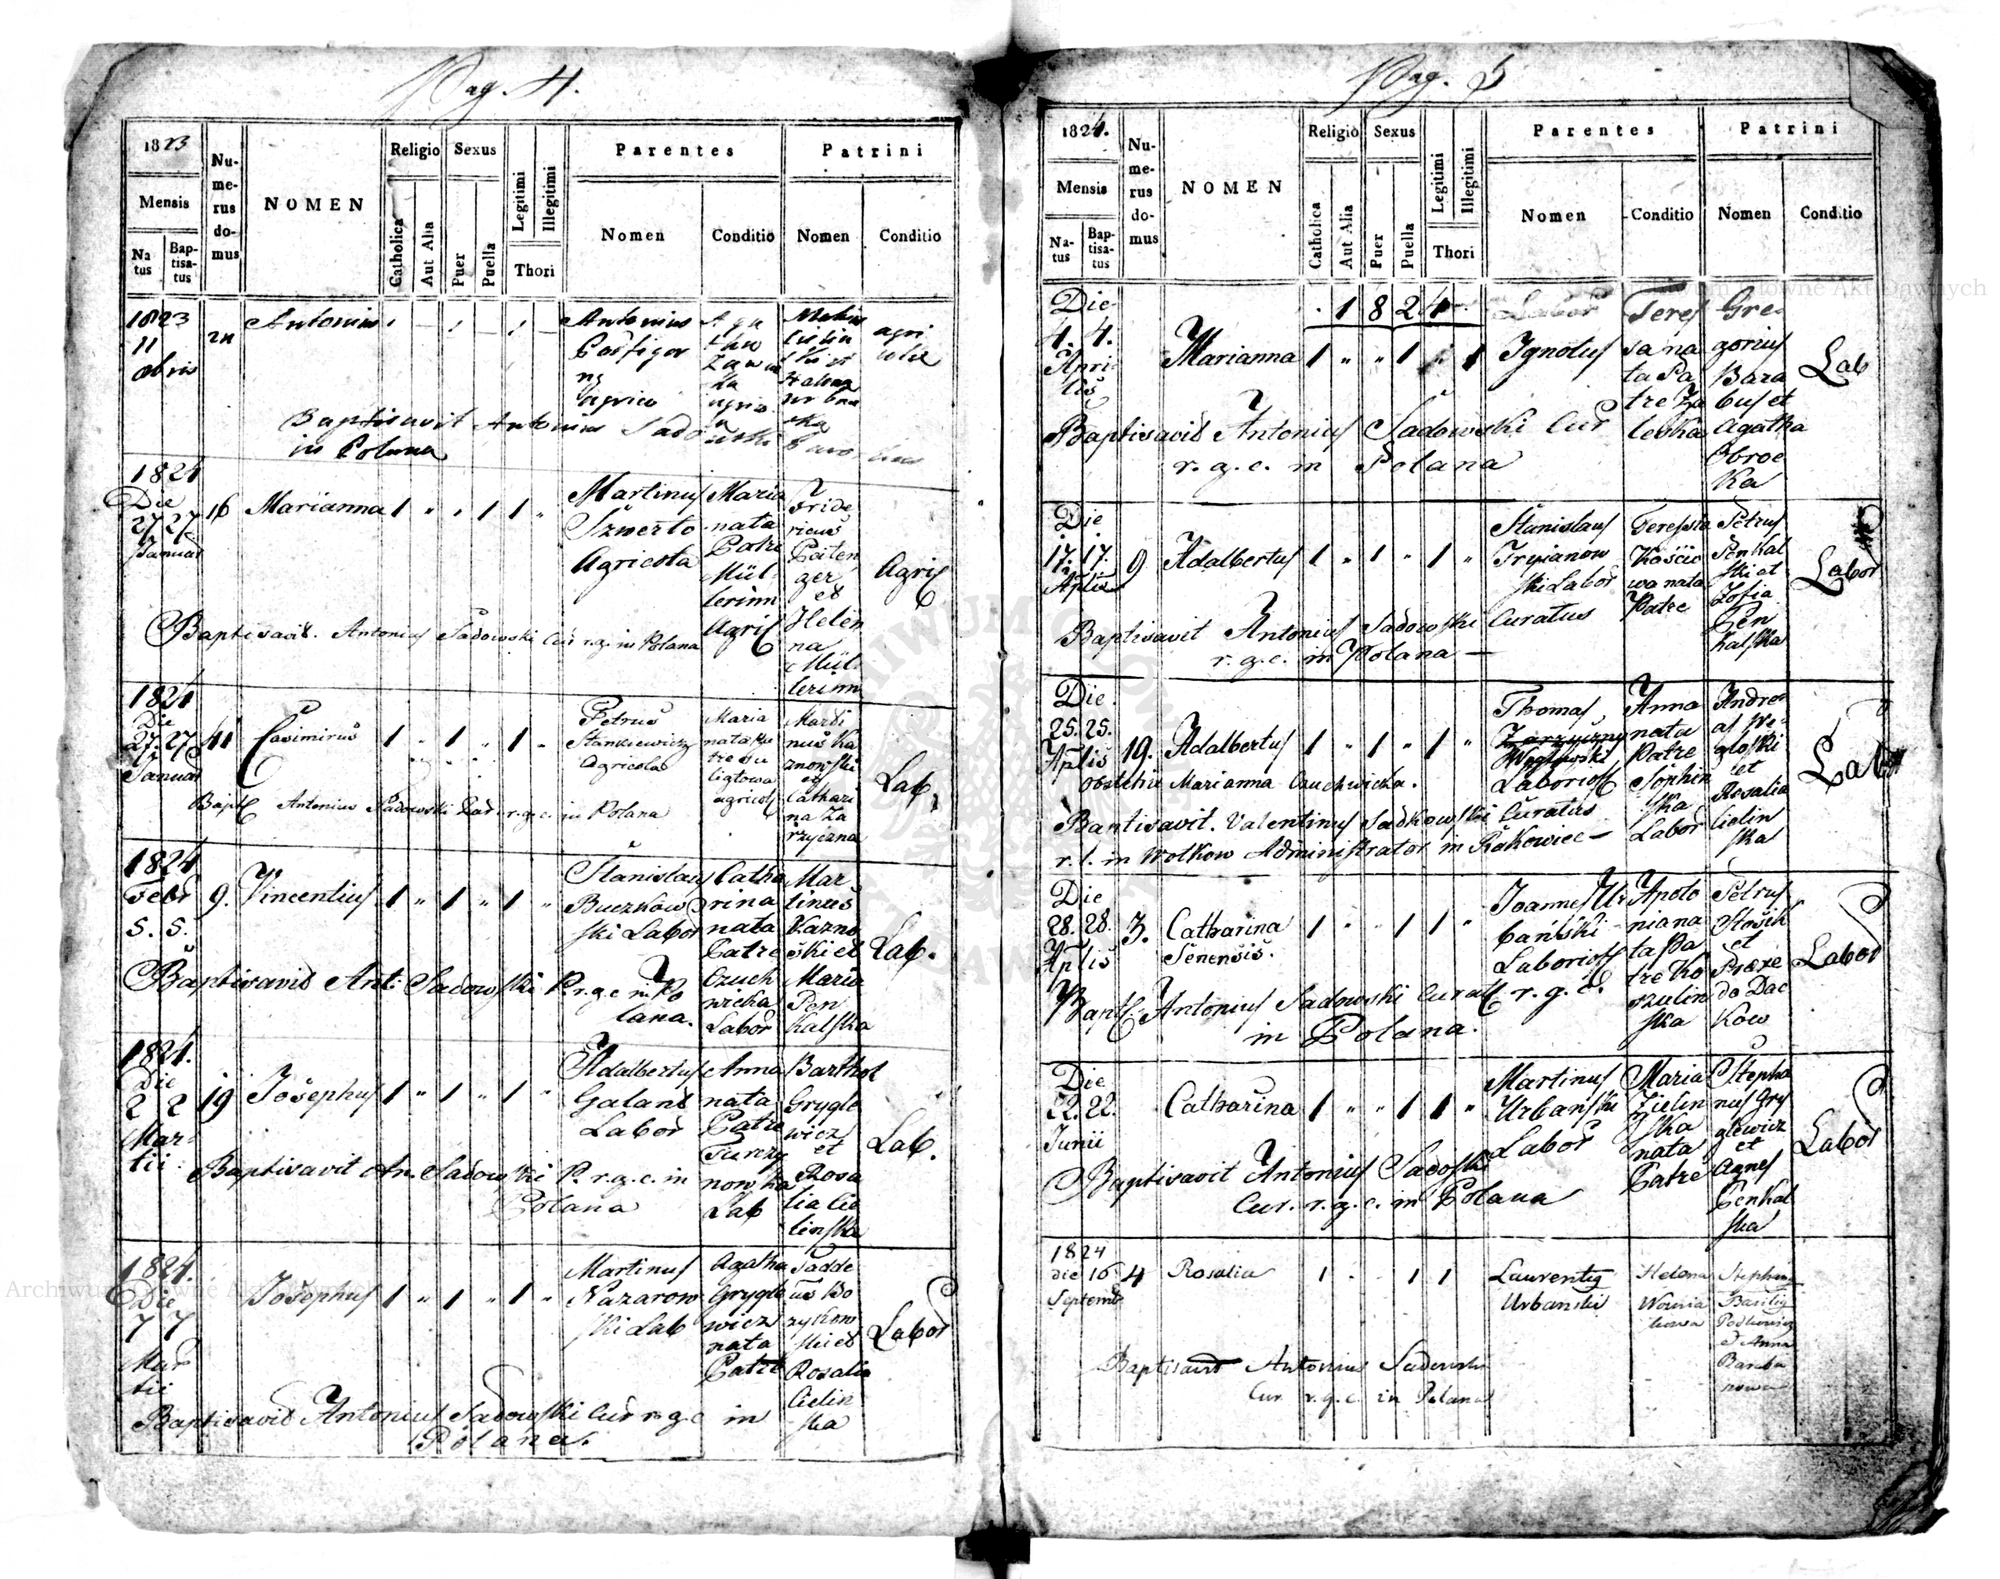 Pag. 4.
1823
Numerus domus
NOMEN
Religio
Sexus
Legitimi
Illegitimi
Parentes
Patrini
Mensis
Natus
Baptisatus
Catholica
Aut Alia
Puer
Puella
Thori
Nomen
Conditio
Nomen
Conditio
1823
11
Antonius
Antonius
agri
Baptisavit Antonius Sadowski
in Polana
1824
Die
27 27
Januar
16
Marianna 1 " " 1 1 "
Martinus
Szwerto
Agricola
Maria
nata
Patre
Mül
lerinn
Agric
Fride
ricus
Eaten
ger
et
Helen
na
Mül
lerinn
Agric
Baptisavit. Antonius Sadowski Cur r.g. in Polana
1824
Die
27. 27
Januar
41
Casimirus 1 " 1 " 1 "
Petrus
Stankiewicz
Agricola
Maria
nata Pa
tre
ligtowa
agricol
Marti
nus Ka
znowski
et
Cathari
na Za
rzyczna
Lab.
Antonius Sadowski r.g.c. in Polana
1824
Febr
5. 5.
9.
Vincentius 1 " 1 " 1 "
Stanislaus
Buczkow
ski Labor
Catha
rina
nata
Patre
Czuch
wicka
Labor
Mar
tinus
Kazno
ski et
Maria
Pen
kalska
Lab.
Baptisavid Ant: Sadowski P. r.g.c in Po
lana.
1824.
Die
2 2
Mar
tii
19
Josephus 1 " 1 " 1 "
Adalbertus
Galant
Labor
Anna
nata
Patre
Turzy
nowka
Lab
Barthol
Grygle
wicz
et
Rosa
lia Cie
linska
Lab.
Baptisavit An. Sadowski P. r.g.c. in
Polana
1824.
Die
7 7
Mar
tii
Josephus 1 " 1 " 1 "
Martinus
Nazarow
ski Lab
Agatha
Grygle
wicz
nata
Patre
Tadde
us Bo
zykow
ski et
Rosalia
Cielin
ska
Labor
Baptisavid Antonius Sadowski Cur r.g.c in
Polana.
Pag. 5
1824.
Numerus domus
NOMEN
Religio
Sexus
Legitimi
Illegitimi
Parentes
Patrini
Mensis
Natus
Baptisatus
Catholica
Aut Alia
Puer
Puella
Thori
Nomen
Conditio
Nomen
Conditio
1824
Die
4. 4.
Apri
lis
Marianna 1 " " 1 " 1
Labor
Ignotus
Teres
sa na
ta Pa
tre Za
lewka
Gre
gorius
Bara
bus et
Agatha
Obroc
ka
Lab
Baptisavid Antonius Sadowski Cur
r.g.c. in Polana
Die
17. 17.
Aplis
9
Adalbertus 1 " 1 " 1 "
Stanislaus
Trysianow
ski Labor
Teressia
Kościo
wa nata
Patre
Petrus
Penkal
ski et
Zofia
Pen
kalska
Labor
Baptisavit Antonius Sadowski Curatus
r.g.c. in Polana
Die
25. 25.
Aplis
19.
Adalbertus 1 " 1 " 1 "
Thomas
Zarzyczny
Węglowski
Laborios
Anna
nata
Patre
Sophin
ska
Labor
Andre
as We
gloski
et
Rosalia
Cielin
ska
Labor
Obstetrix Marianna Czuchwicka.
Baptisavit. Valentinus Sadkowski Curatus
r.l. in Wolkow Administrator in Rakowiec
Die
28. 28.
Aplis
3.
Catharina 1 " " 1 1 "
Senensis.
Joannes Ur
bański
Laborios
Apolo
niana
ta Pa
tre Ko
szulin
ska
Petrus
Stosik
et
Praxe
da Dac
kow
Labor
Bapt. Antonius Sadowski Curat r.g.c.
in Polana.
Die
22. 22.
Junii
Catharina 1 " " 1 1 "
Martinus
Urbański
Labor
Maria
Zielin
ska
nata
Patre
Stepha
nus Gry
glewicz
et
Agnes
Penkal
ska
Labor
Baptisavit Antonius Sadoski
Cur. r.g.c. in Polana
1824
die 16
Septemb
4
Rosalia 1 1 1
Laurenty
Urbanski
Helena
Stephan
Basilig
et Anna
Baraba
nowa
Baptisavit Antonius Sadowski
Cur r.g.c. in Polana
Archiwum Główne Akt Dawnych
Archiwum Główne Akt Dawnych